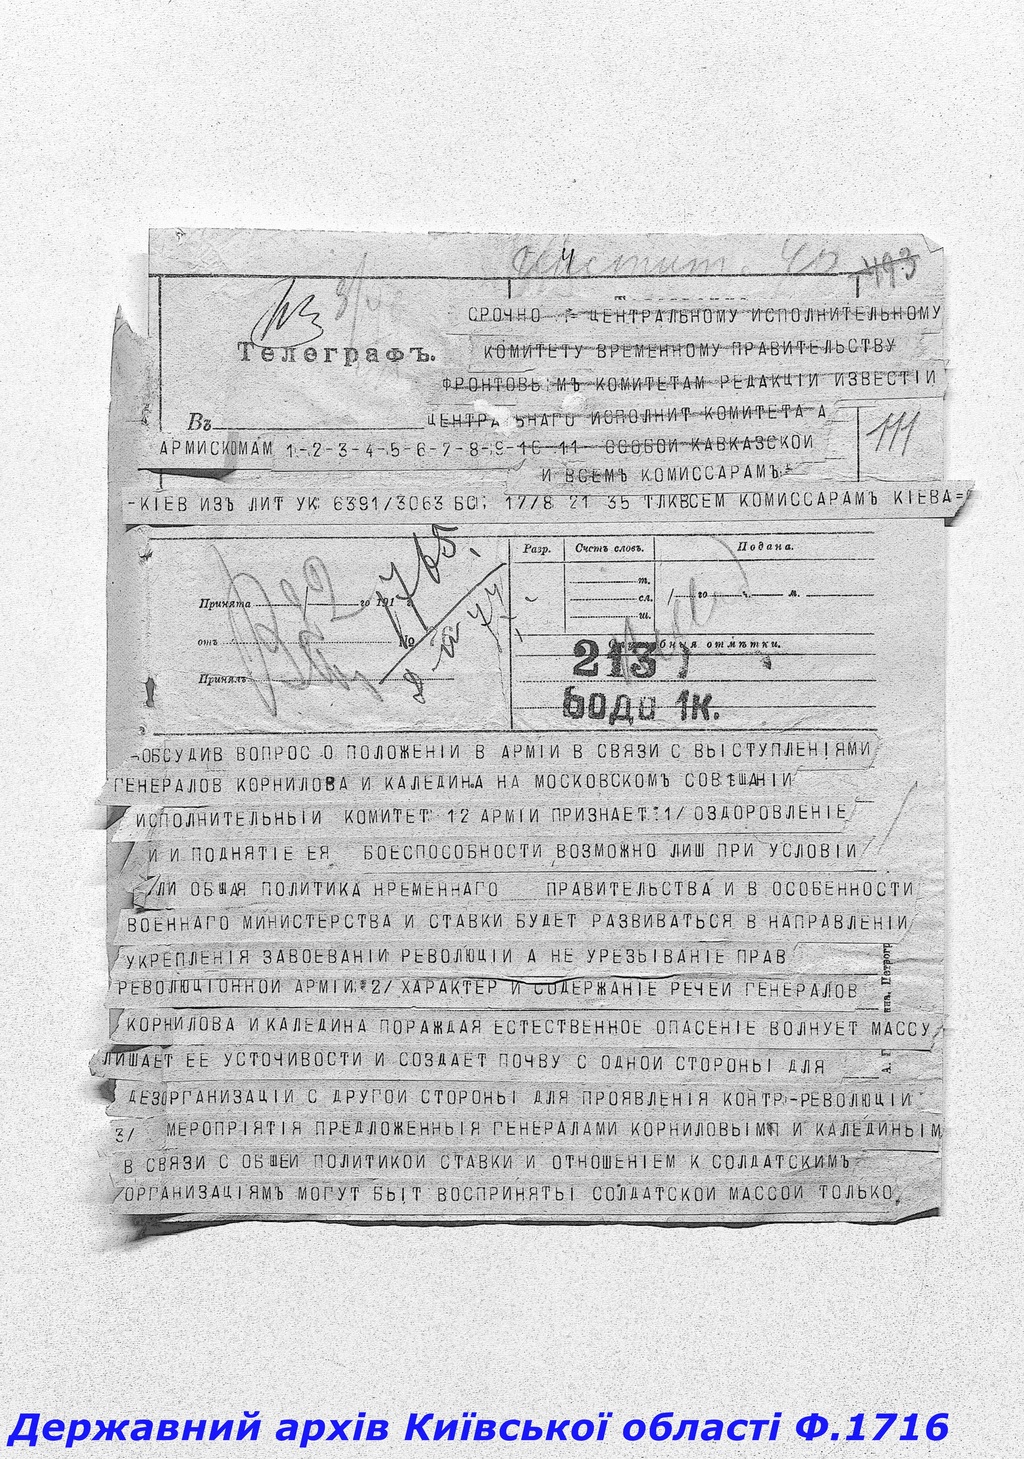 493
СРОЧНО := ЦЕНТРАЛЬНОМУ ИСПОЛНИТЕЛЬНОМУ
Телеграфъ.
КОМИТЕТУ ВРЕМЕННОМУ ПРАВИТЕЛЬСТВУ
ФРОНТОВЫМЪ КОМИТЕТАМ РЕДАКЦIИ ИЗВЕСТIИ
Въ
ЦЕНТРАЛЬНАГО ИСПОЛНИТ КОМИТЕТА А
111
АРМИСКОМАМ 1-2-3-4-5-6-7-8-9-10-11- ОСОБОЙ КАВКАЗСКОЙ
И ВСЕМЪ КОМИССАРАМЪ=
-КIЕВ ИЗЪ ЛИТ УК 6391/3063 БО; 17/8 21 35 ТЛКВСЕМ КОМИССАРАМЪ КIЕВА=
Разр. Счетъ словъ. Подана.
т.
Принята го 191 г. сл. го ч. м.
ш.
отъ № Служебныя отмѣтки.
213
Принялъ
бодо 1к.
-ОБСУДИВ ВОПРОС О ПОЛОЖЕНIИ В АРМIИ В СВЯЗИ С ВЫСТУПЛЕНIЯМИ
ГЕНЕРАЛОВ КОРНИЛОВА И КАЛЕДИНА НА МОСКОВСКОМЪ СОВЕЩАНIИ
ИСПОЛНИТЕЛЬНЫЙ КОМИТЕТ 12 АРМIИ ПРИЗНАЕТ:1/ ОЗДОРОВЛЕНIЕ
И И ПОДНЯТIЕ ЕЯ БОЕСПОСОБНОСТИ ВОЗМОЖНО ЛИШ ПРИ УСЛОВIИ
ЛИ ОБЩАЯ ПОЛИТИКА НРЕМЕННАГО ПРАВИТЕЛЬСТВА И В ОСОБЕННОСТИ
ВОЕННАГО МИНИСТЕРСТВА И СТАВКИ БУДЕТ РАЗВИВАТЬСЯ В НАПРАВЛЕНIИ
УКРЕПЛЕНIЯ ЗАВОЕВАНIЙ РЕВОЛЮЦIИ А НЕ УРЕЗЫВАНIЕ ПРАВ
РЕВОЛЮЦIОННОЙ АРМIИ:2/ ХАРАКТЕР И СОДЕРЖАНIЕ РЕЧЕЙ ГЕНЕРАЛОВ
КОРНИЛОВА И КАЛЕДИНА ПОРАЖДАЯ ЕСТЕСТВЕННОЕ ОПАСЕНIЕ ВОЛНУЕТ МАССУ
ЛИШАЕТ ЕЕ УСТОЧИВОСТИ И СОЗДАЕТ ПОЧВУ С ОДНОЙ СТОРОНЫ ДЛЯ
ДЕЗОРГАНИЗАЦIЙ С ДРУГОЙ СТОРОНЫ ДЛЯ ПРОЯВЛЕНIЯ КОНТР-РЕВОЛЮЦIИ
3/ МЕРОПРIЯТIЯ ПРЕДЛОЖЕННЫЯ ГЕНЕРАЛАМИ КОРНИЛОВЫМ И КАЛЕДИНЫМ
В СВЯЗИ С ОБЩЕЙ ПОЛИТИКОЙ СТАВКИ И ОТНОШЕНIЕМ К СОЛДАТСКИМЪ
ОРГАНИЗАЦIЯМЪ МОГУТ БЫТ ВОСПРИНЯТЫ СОЛДАТСКОЙ МАССОЙ ТОЛЬКО
Державний архів Київської області Ф.1716